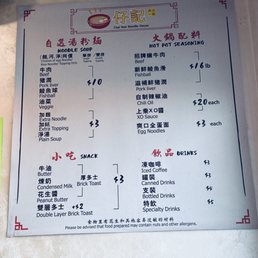 仔記
自選湯粉麵
NOODLE SOUP
牛肉
Beef
豬潤
Pork liver
鯪魚球
Fishball
油菜
Veggie
$10
加麵
Extra Noodle
加料
Extra Topping
淨湯
Plain Soup
$3
火鍋配料
HOT POT SEASONING
招牌醃牛肉
Beef
新鮮鯪魚滑
Fishball
溫補鮮豬潤
Pork Liver
自制辣椒油
Chili Oil
上乘XO醬
XO Sauce
爽口全蛋麵
Egg Noodles
$20 each
$3 each
小吃 SNACK
牛油
Butter
煉奶
Condensed Milk
花生醬
Peanut Butter
厚多士
Brick Toast
雙層多士
Double Layer Brick Toast
+$2
飲品 DRINKS
凍咖啡
Iced Coffee
罐裝
Canned Drinks
支裝
Bottled Drinks
特飲
Specialty Drinks
食物里有花生和其他容易過敏的材料
Please be advised that food prepared may contain nuts and other allergens.